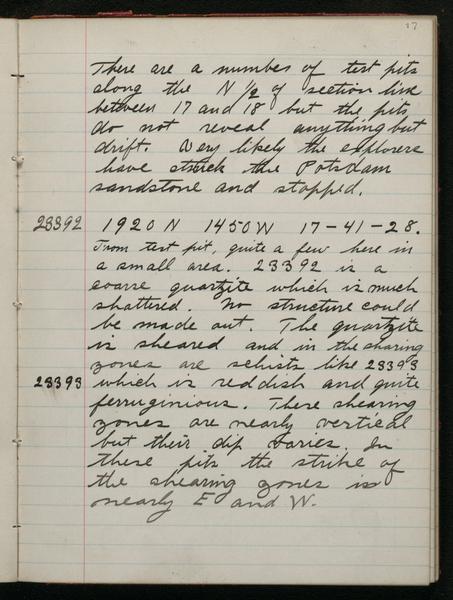 17
There are a number of test pits
along the N 1/2 of section line
between 17 and 18 but the pits
do not reveal anything but
drift. Very likely the explorers
have struck the Potsdam
sandstone and stopped.
23392 1920 N 1450 W 17-41-28.
From test pit, quite a few here in
a small area. 23392 is a
coarse quartzite which is much
shattered. No structure could
be made out. The quartzite
is sheared and in the sharing
zones are schists like 23393
23393 which is reddish and quite
ferruginious. These shearing
zones are nearly vertical
but their dip varies. In
these pits the strike of
the shearing zones is
nearly E and W.